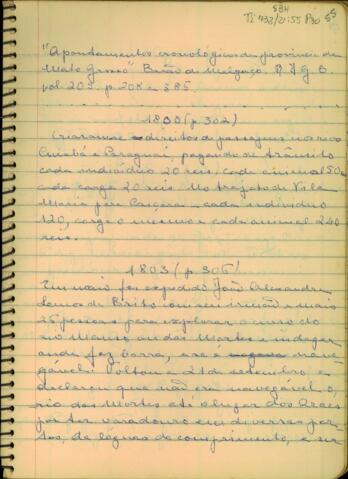 584
55
"Apontamentos cronológicos da provincia de
Mato Grosso" Barão de Melgaço. R.I.G.B.
vol 205. p. 208 a 385.
1800 (p. 302)
direitos de passagens no rio
Cuiabá e Paraguai, pagando de trânsito
cada individuo 20 reis, cada animal 50 e
cada carga 20 reis. No trajeto de Vila
Maria para cada individuo
120, carga o mesmo e cada animal 240
reis.
1803 (p. 306)
Em maio foi expedido João Alexandre
Lemos de Brito com seu irmão e mais
25 pessoas para explorar o curso do
rio Manso ou das Mortes e indagar
onde fez barra, e se é nave-
gavel. Voltou a 21 de setembro e
declarou que não era navegável o
rio das Mortes até o lugar dos Araes
por ter varadouro em diversas par-
tos, de léguas de comprimento, e ser